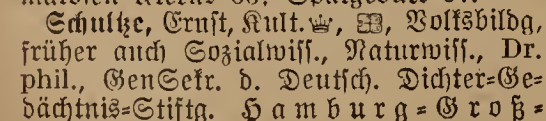 Schultze, Ernst, Kult. Volksbildg,
früher auch Sozialwiss., Naturwiss., Dr.
phil., GenSekr. d. Deutsch. Dichter-Ge-
dächtnis-Stiftg. Hamburg-Groß-